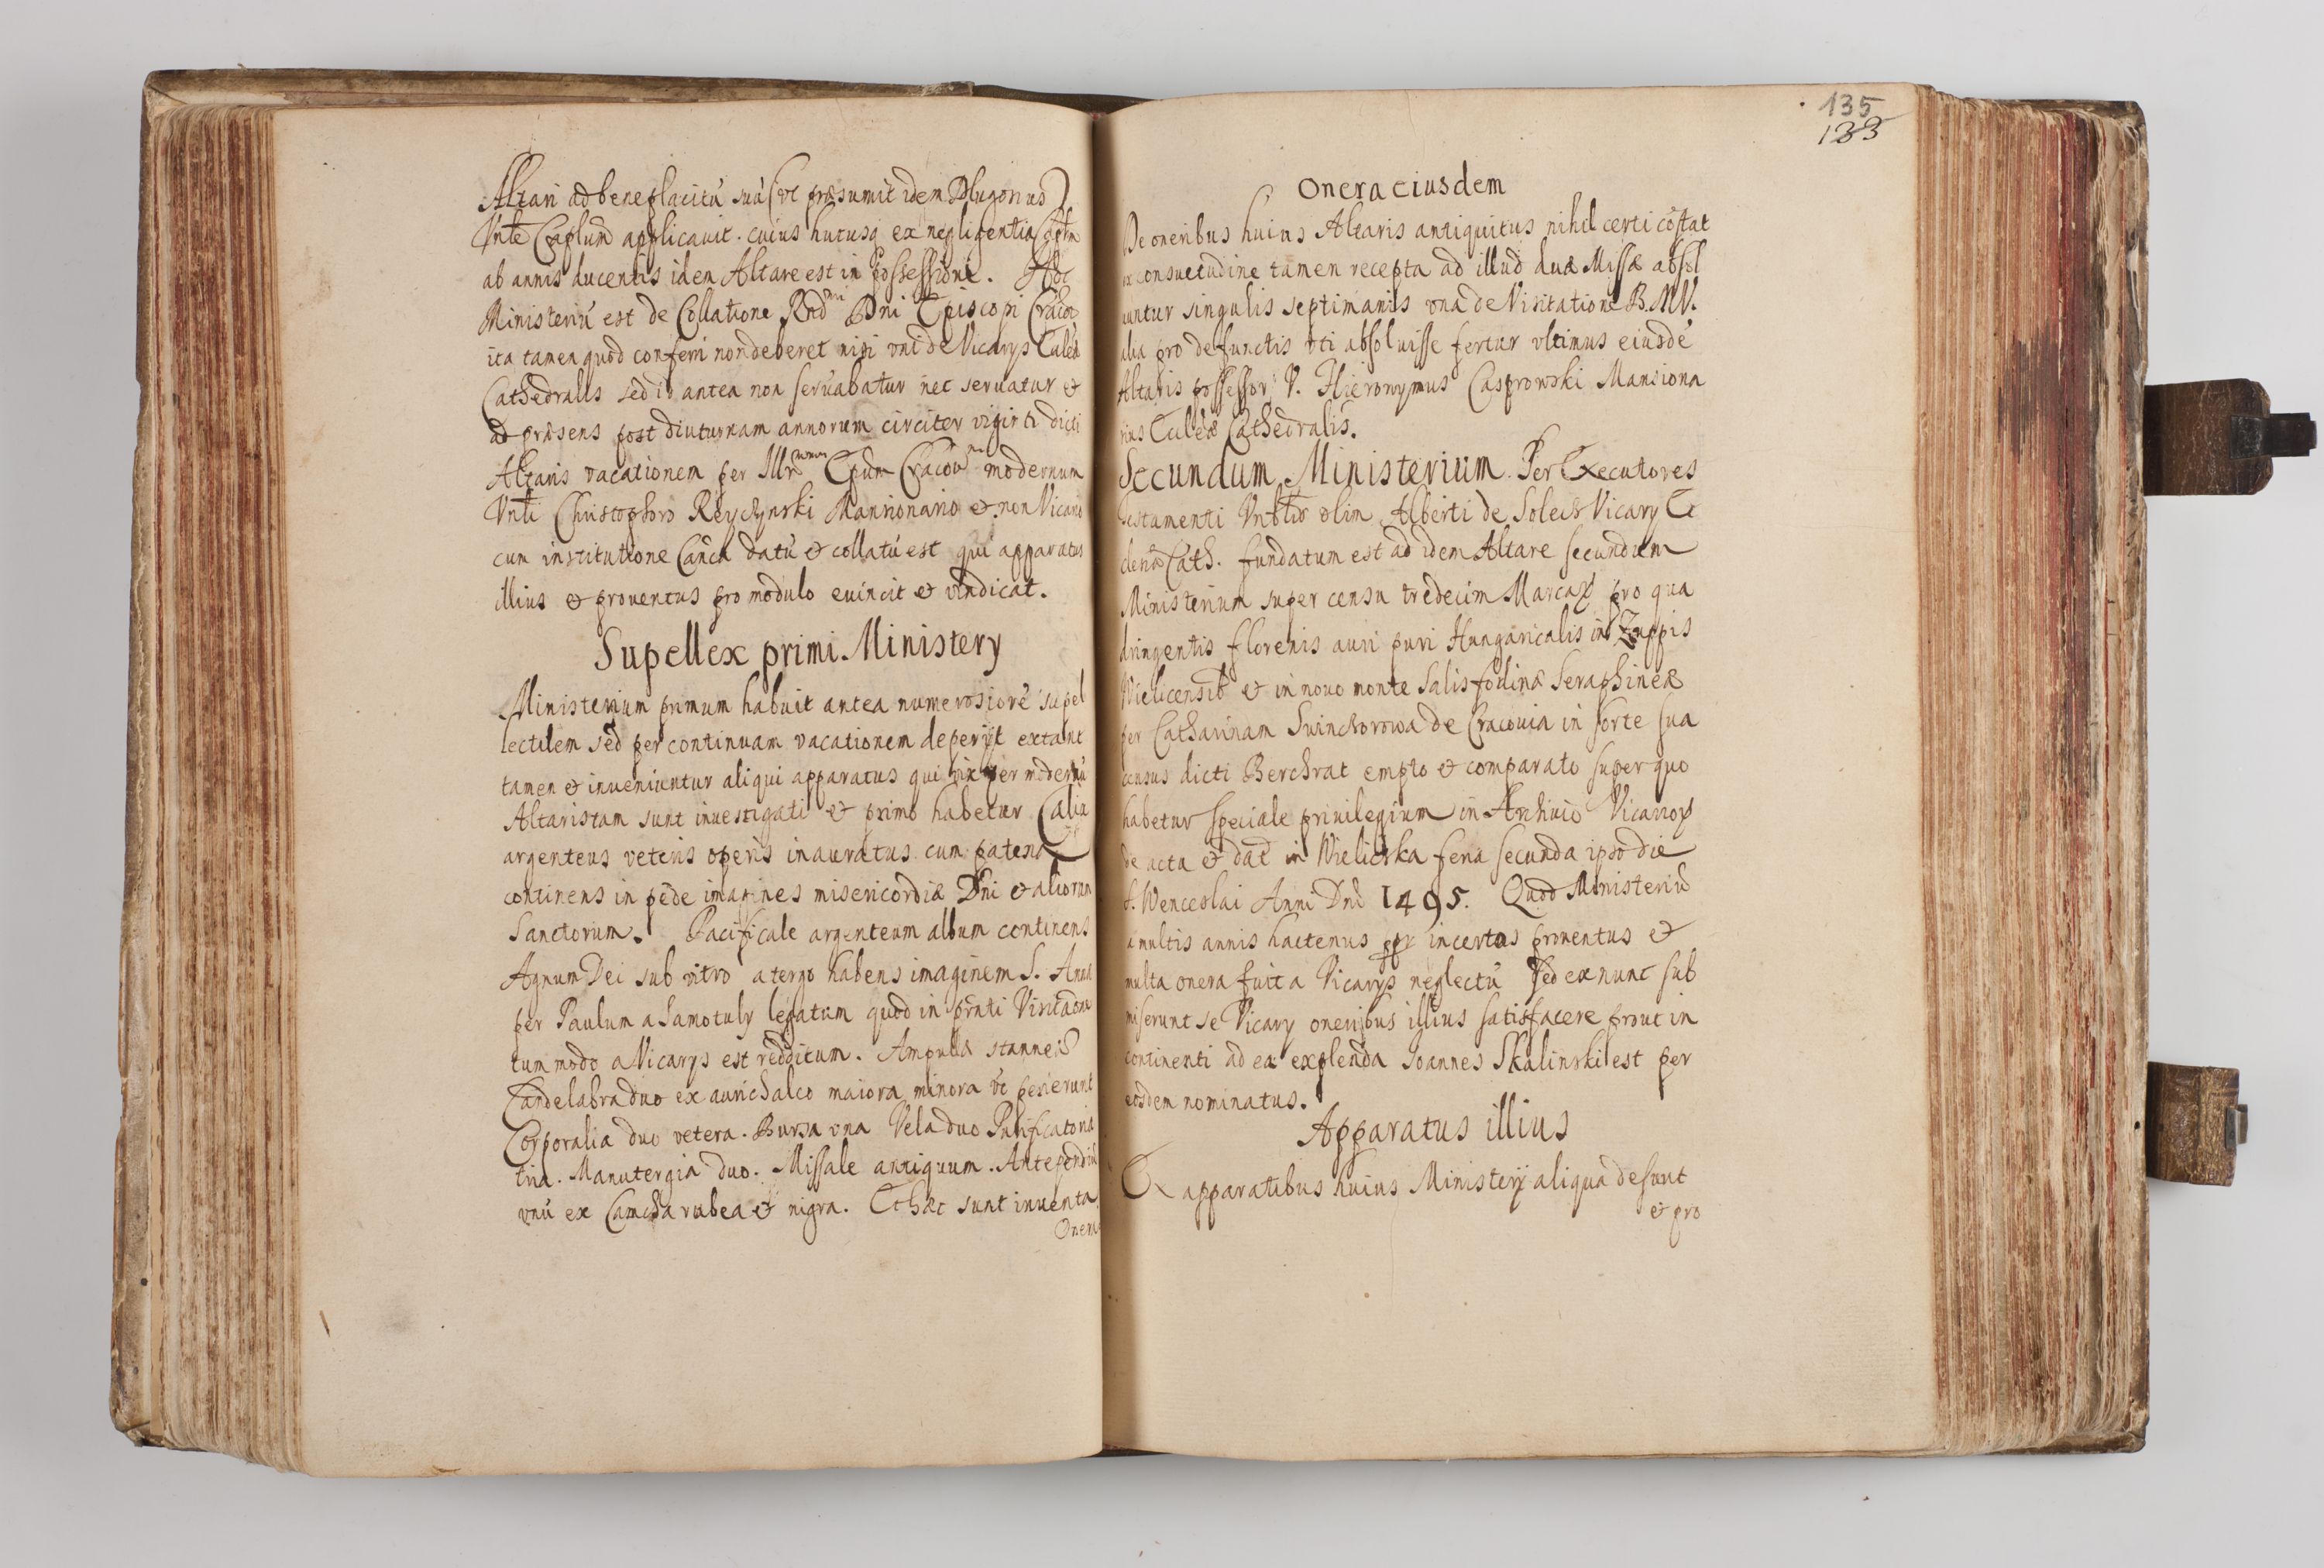 Altari ad beneplacitū suū (vt præsumit idem Dlugossius)
Vnle Caplum applicauit. cuius hucusq ex negligentia Captm
ab annis ducentis idem Altare est in possessione. Hoc
Ministeriū est de Collatione Rndmi Dni Episcopi Cracou
ita tamen quod conferri non deberet nisi vni de Vicarys Eccleæ
Cathedralis sed id antea non seruabatur nec seruatur et
ad præsens post diuturnam annorum circiter viginti dicti
Altaris vacationem per Illrmum Epum Cracoun modernum
Vnli Christophoro Reychynski Mansionario et non Vicario
cum institutione Canca datū et collatū est qui apparatus
illius et prouentus pro modulo euincit et vindicat.
Supellex primi Ministery
Ministerium primum habuit antea numerosiorē supel
lectilem sed per continuam vacationem deperijt extant
tamen et inueniuntur aliqui apparatus qui vix per modernū
Altaristam sunt inuestigati et primo habetur Calix
argenteus veteris operis inauratus cum patena
continens in pede imagines misericordiæ Dni et aliorum
Sanctorum. Pacificale argenteum album continens
Agnum Dei sub vitro a tergo habens imaginem S. Annæ
per Paulum a Samotuly legatum quod in prnti Visitaone
tum modo a Vicarys est redditum. Ampullæ stanneæ
Candelabra duo ex aurichalco maiora minora vt perierunt
Corporalia duo vetera. Bursa vna Vela duo Purificatoria
tria. Manutergia duo. Missale antiquum. Antependiū
vnū ex Camcha rubea et nigra. Et hæc sunt inuenta.
Onera
135
133
Onera eiusdem
De oneribus huius Altaris antiquitus nihil certi cōstat
ex consuetudine tamen recepta ad illud duæ Missæ absol
uuntur singulis septimanis vna de Visitatione B.M.V.
alia pro defunctis vti absoluisse fertur vltimus eiusdē
Altaris possessor V. Hieronymus Casprowski Mansiona
rius Eccleæ Cathedralis.
Secundum Ministerium. Per Executores
Testamenti Vnblis olim Alberti de Solech Vicary Ec
cleæ Cath. fundatum est ad idem Altare secundum
Ministerium super censu tredecim Marcaꝝ pro qua
dringentis florenis auri puri Hungaricalis in Zuppis
Wielicensib et in nouo monte Salisfodinæ Seraphineæ
per Catharinam Swinchorowa de Cracouia in sorte sua
census dicti Berchrat empto et comparato super quo
habetur speciale priuilegium in Archiuio Vicarioꝝ
de acta et dat in Wielicska feria secunda ipso die
S. Wenceslai Anni Dni 1495. Quod Ministeriū
a multis annis hactenus ppr incertos prouentus et
multa onera fuit a Vicarys neglectū sed ex nunc sub
miserunt se Vicary oneribus illius satisfacere prout in
continenti ad ea explenda Ioannes Skalinski est per
eosdem nominatus.
Apparatus illius
Ex apparatibus huius Ministerij aliqua desunt
et pro